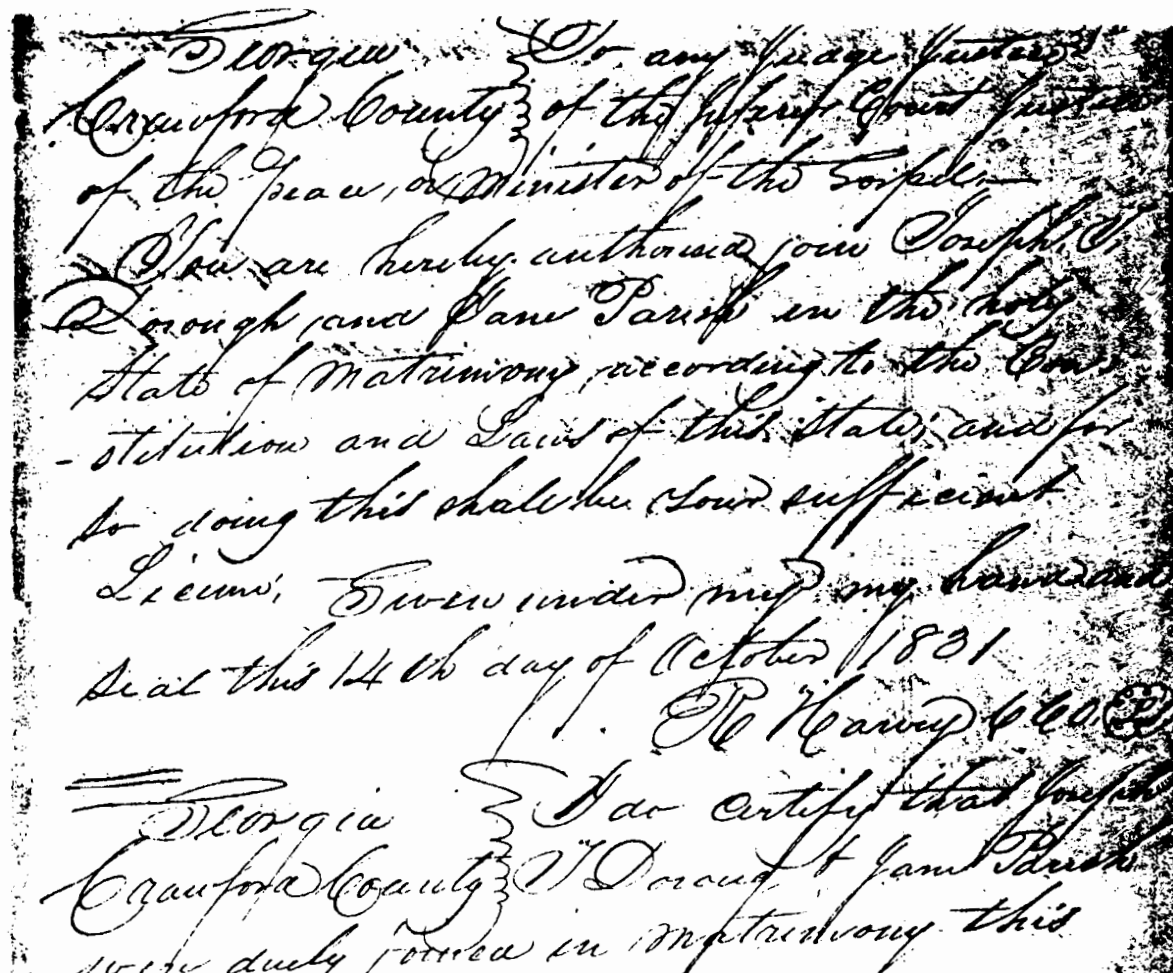 Georgia To any Judge Justice
Crawford County of the Infr Court Justice
of the Peace, or Minister of the Gospel
You are hereby authorised join Joseph T.
Dorough and Jane Parish in the holy
State of Matrimony, according to the Con
-stitution and Laws of this State; and for
so doing this shall be your sufficient
License, Given under my my hand and
seal this 14th day of October 1831
R Harvey CCO
Georgia I do certify that Joseph
Crawford County T Doroug & Jane Parish
were duely joined in Matrimony this